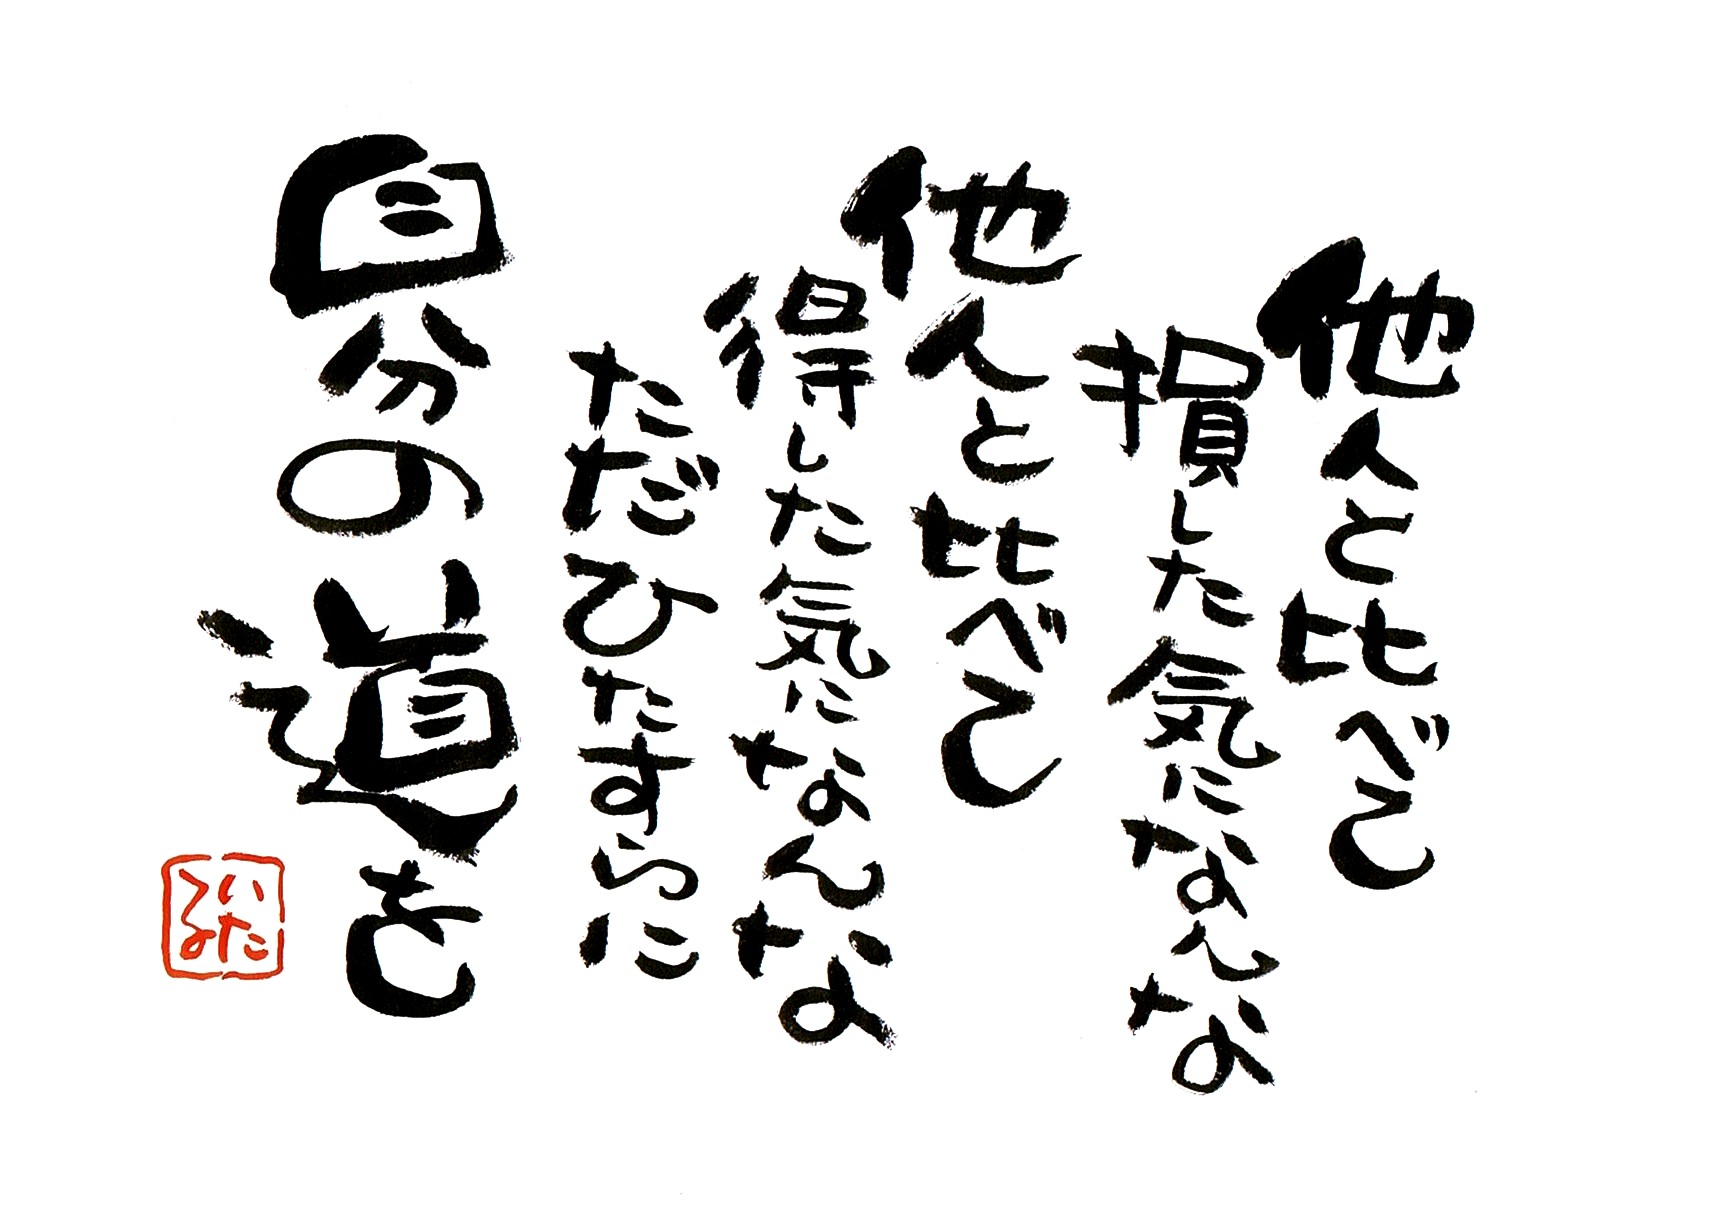 他人と比べて
損した気になんな
他人と比べて
得した気になんな
ただひたすらに
自分の道を
いた
る